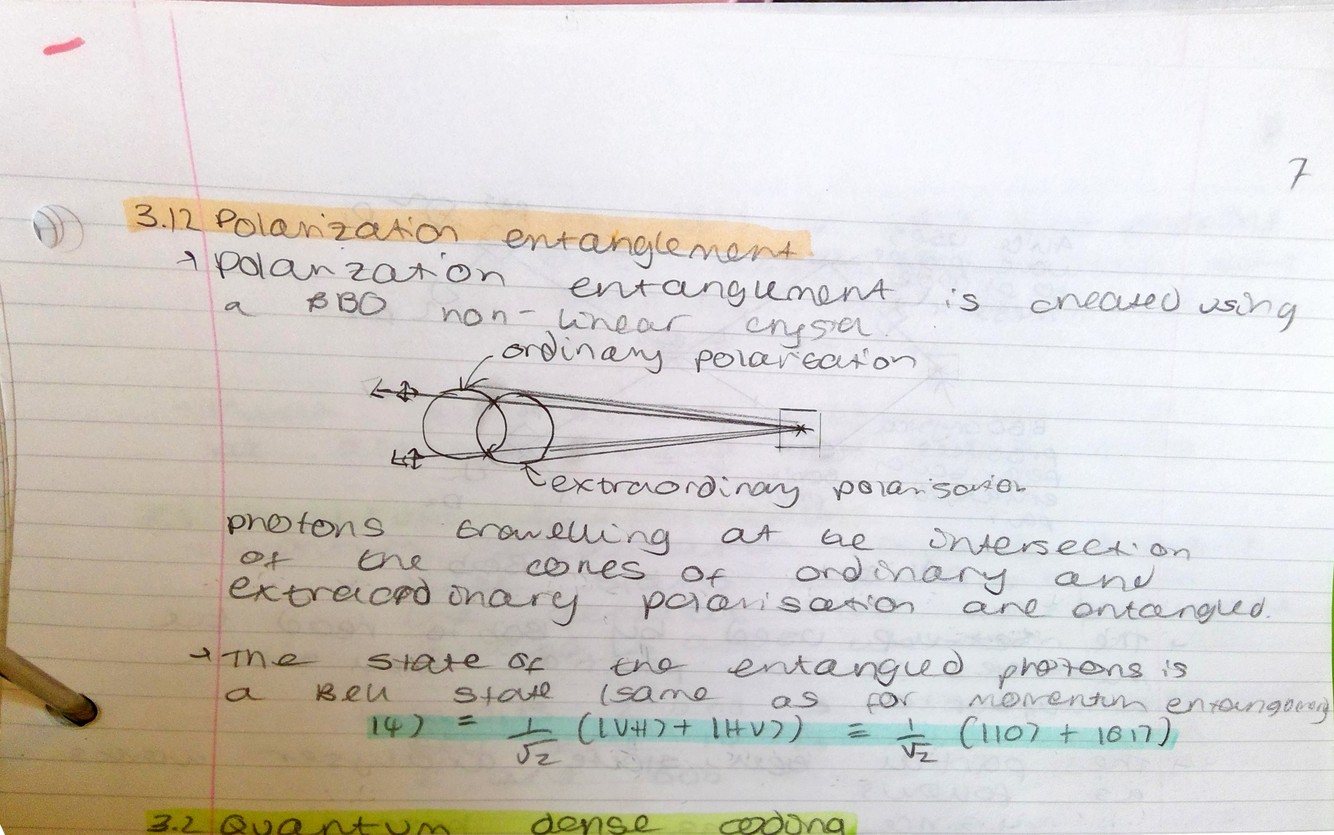 7
3.12 Polarization entanglement
→ Polarization entanglement is created using
a BBO non-linear crystal.
ordinary polarisation
extraordinary polarisation
photons travelling at the intersection
of the cones of ordinary and
extraordinary polarisation are entangled.
→ The state of the entangled photons is
a Bell state (same as for momentum entanglement)
|ψ⟩ = 1/√2 (|VH⟩ + |HV⟩) = 1/√2 (|10⟩ + |01⟩)
3.2 Quantum dense coding